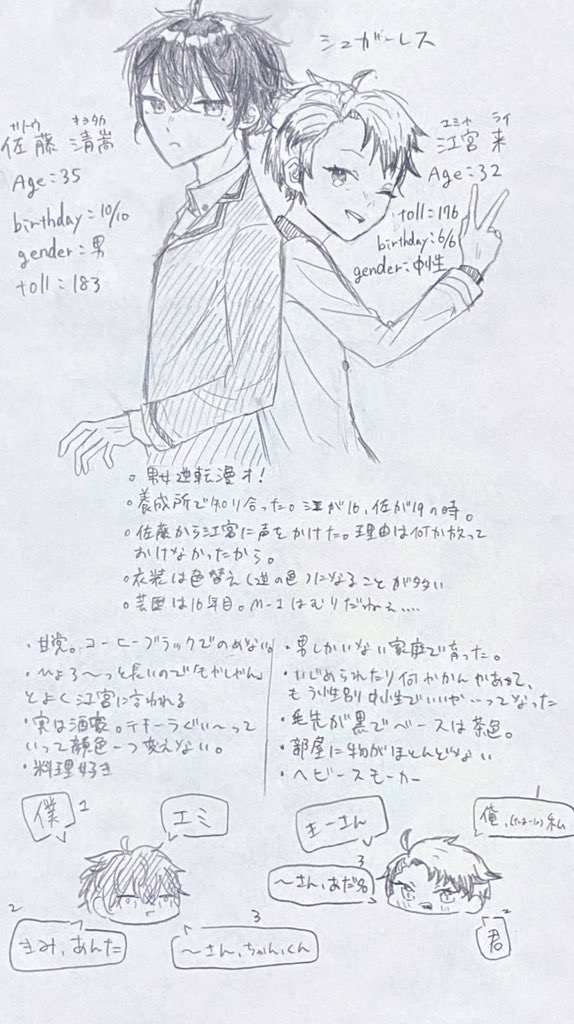 シュガーレス
サトウ キヨタカ
佐藤 清嵩
Age:35
birthday:10/10
gender:男
toll:183
エミヤ ライ
江宮 来
Age:32
toll:176
birthday:6/6
gender:中性
。男女逆転漫才!
。養成所で知り合った。江が16、佐が19の時。
。佐藤から江宮に声をかけた。理由は何か放って
おけなかったから。
。衣装は色替え(逆の色)になることが多い
。芸歴は16年目。M-1はむりだねぇ....
・甘党。コーヒーブラックでのめない。
・ひょろ〜っと長いので「もやしやん」
とよく江宮に言われる
・実は酒豪。テキーラぐい〜って
いって顔色一つ変えない。
・料理好き
・男しかいない家庭で育った。
・いじめられたり何かかんかあって、
もう性別中性でいいや…ってなった
・毛先が黒でベースは茶色。
・部屋に物がほとんどない
・ヘビースモーカー
僕 1
エミ
2
きみ、あんた
3
〜さん、ちゃん、くん
きーさん
1
俺、私
3
〜さん、あだ名
2
君